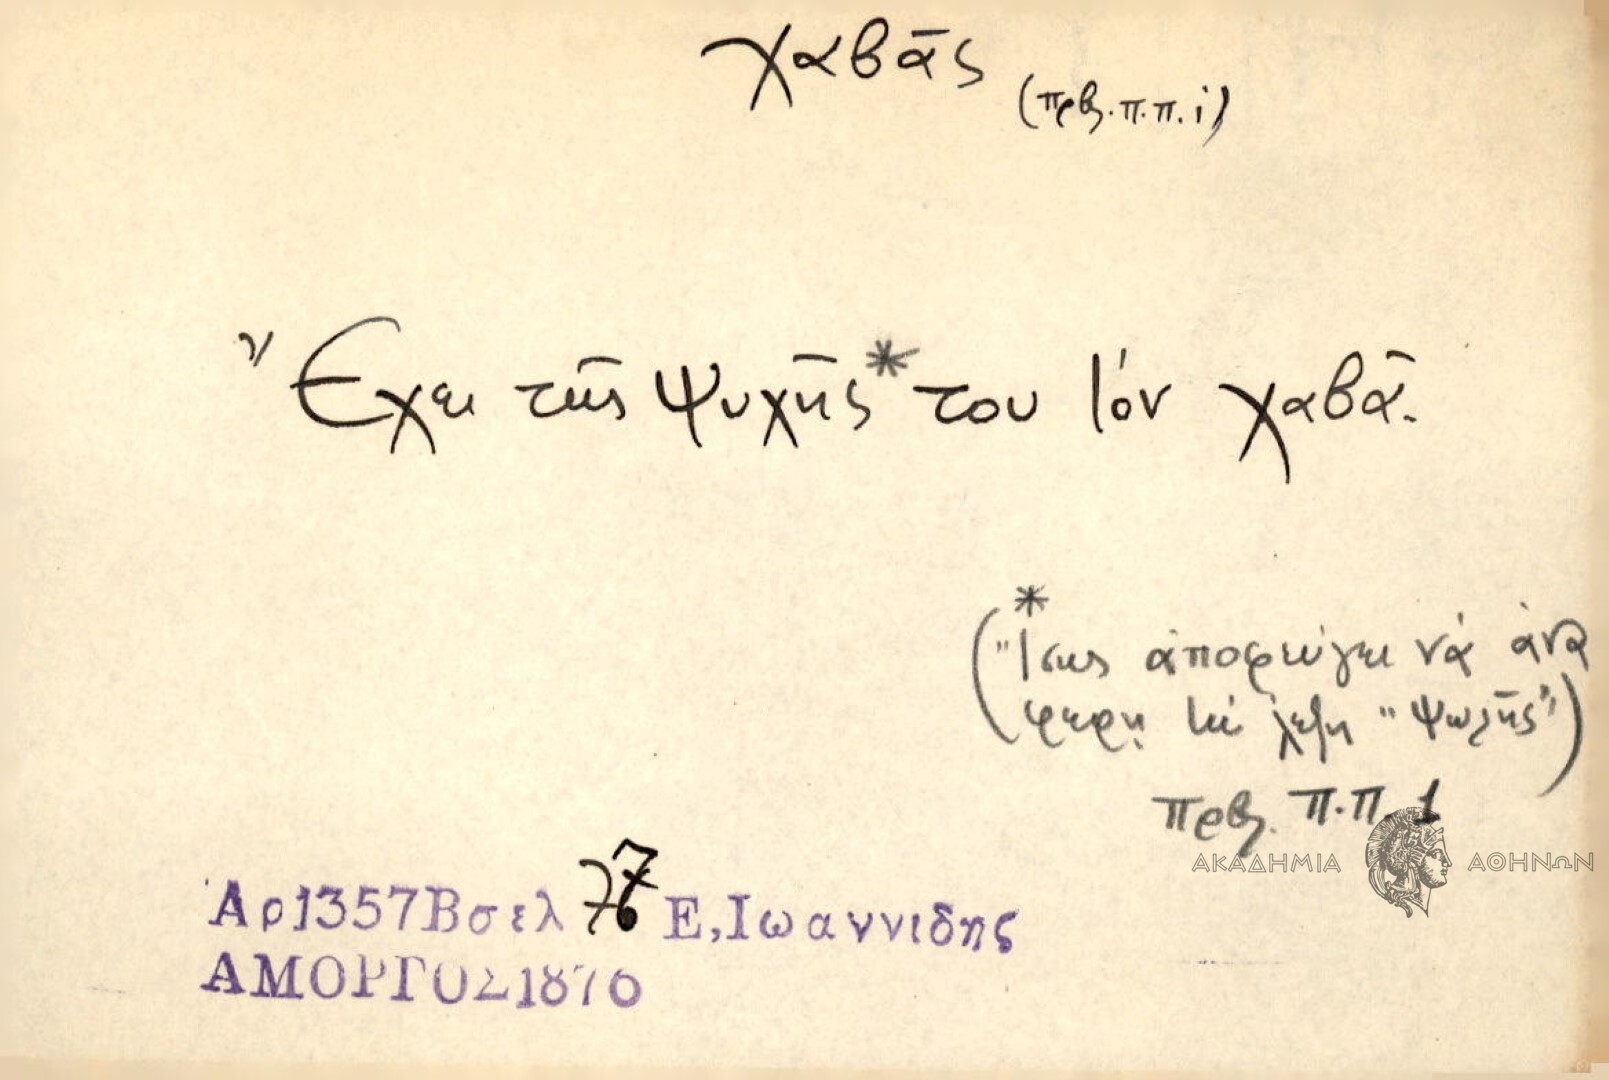 χαβᾶς
(πρβ. π.π. i)
Ἔχει τῆς ψυχῆς* του τὸν χαβᾶ.
*
(Ἴσως ἀποφεύγει νὰ ἀνα
φέρῃ τὴ λέξη "ψωλῆς")
πρβ. Π.Π. 1
ΑΚΑΔΗΜΙΑ ΑΘΗΝΩΝ
Αρ1357Βσελ Ε,Ιωαννιδης
ΑΜΟΡΓΟΣ1876